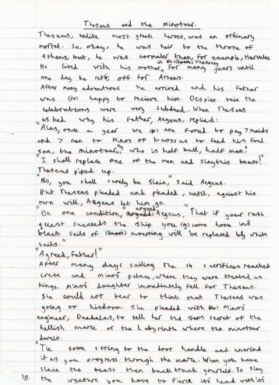 Theseus and the minotaur.
Theseus, unlike most greek heroes, was an ordinary
mortal. Ie. okay, he was heir to the throne of
Athens but, he was normaler than, for example, Hercules
He lived with his mother, for many years until
one day he sets off for Athens.
After many adventures he arrived and his father
was so happy to receive him. Despite this the
celebrations were very subdued. When Theseus
asked why his father, Aegeus, replied:
"Alas, once a year we are forced to pay 7 maids
and 7 men to Minos of to feed him foul
son, the minotaur, who is half bull, half man!"
"I shall replace one of the men and slay this beast!"
Theseus piped up.
"No, you shall surely be slain," Said Aegeus.
But Theseus pleaded and pleaded, until, against his
own will, Aegeus let him go.
"On one condition," Aegeus, "That if your
quest succeeds the ship you home in
black sails will be replaced by white
sails."
"Agreed, Father!"
After many days sailing the 14 sacrifices reached
crete and Minos' palace, where they were treated as
kings. Minos' daughter immediately fell for Theseus.
She could not bear to think that Theseus was
going to his doom. She pleaded with Minos'
engineer, Daedalus, to tell her the secret of the
hellish maze of the Labyrinth where the minotaur
dwelt.
"Tie some string to the door handle and unwind
it as you progress through the maze. When you have
slain the beast then back track yourself. To slay
the creature you have to